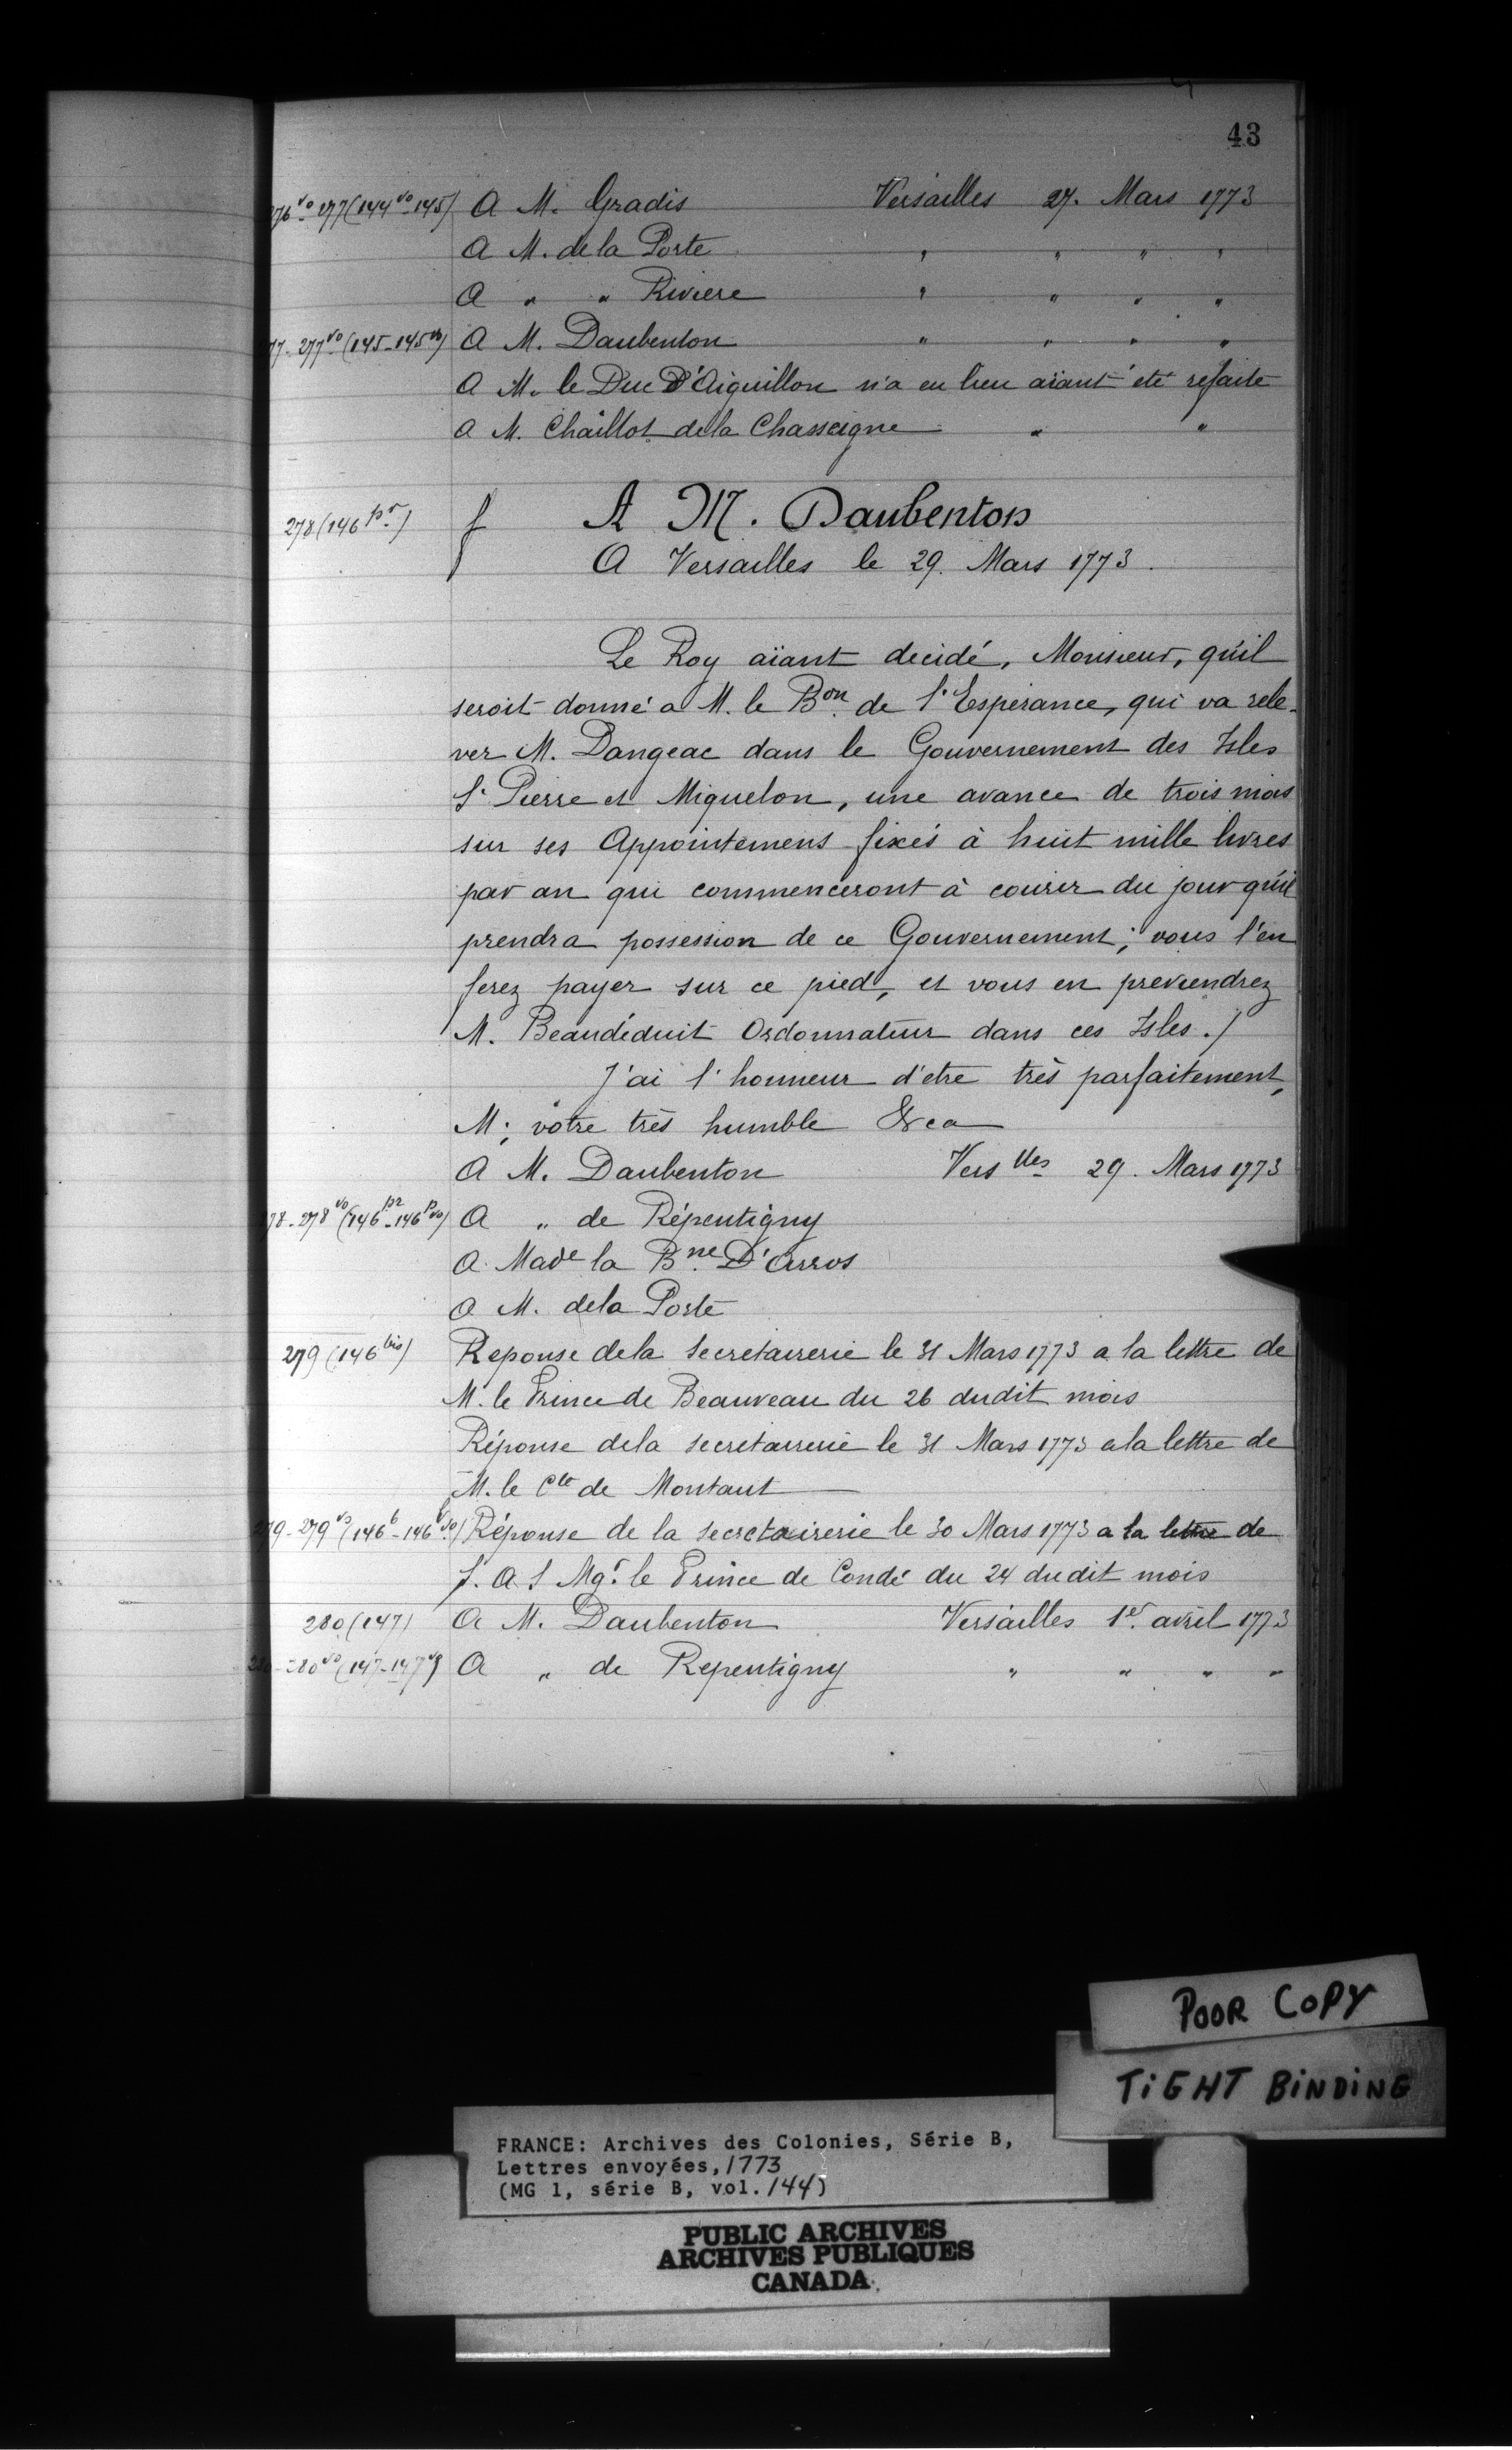 43
276vo-277(144vo-145) A M. Gradis Versailles 27. Mars 1773
A M. de la Porte " " " "
A " " Riviere " " " "
77-277vo(145-145vo) A M. Daubenton " " " "
A M. le Duc D'Aiguillon n'a eu lieu aïant été refaite
A M. Chaillot de la Chasseigne " "
278(146 pr.) A M. Daubenton
A Versailles le 29. Mars 1773.
Le Roy aïant decidé, Monsieur, qu'il
seroit donné a M. le Bon. de l'Espérance, qui va rele-
ver M. Dangeac dans le Gouvernement des Isles
St Pierre et Miquelon, une avance de trois mois
sur ses Appointemens fixés à huit mille livres
par an qui commenceront à courir du jour qu'il
prendra possession de ce Gouvernement; vous l'en
ferez payer sur ce pied, et vous en previendrez
M. Beaudéduit Ordonnateur dans ces Isles ./
J'ai l'honneur d'etre très parfaitement,
M; votre très humble &ca
A M. Daubenton Vers lles 29. Mars 1773
78-278vo(146pr-146pvo) A " de Répentigny
A Made la Bne. D'Arros
A M. de la Porte
279(146bis) Reponse de la secretairerie le 31 Mars 1773 a la lettre de
M. le Prince de Beauveau du 26 dudit mois
Réponse de la secretairerie le 31 Mars 1773 a la lettre de
M. le Cte de Montaut
279-279vo(146b-146bvo) Réponse de la secretairerie le 30 Mars 1773 a la lettre de
S. A S Mgr. le Prince de Condé du 24 dudit mois
280(147) A M. Daubenton Versailles 1er. avril 1773
280-280vo(147-147vo) A " de Repentigny " " " "
POOR COPY
TiGHT BiNDiNG
FRANCE: Archives des Colonies, Série B,
Lettres envoyées, 1773
(MG 1, série B, vol. 144)
PUBLIC ARCHIVES
ARCHIVES PUBLIQUES
CANADA